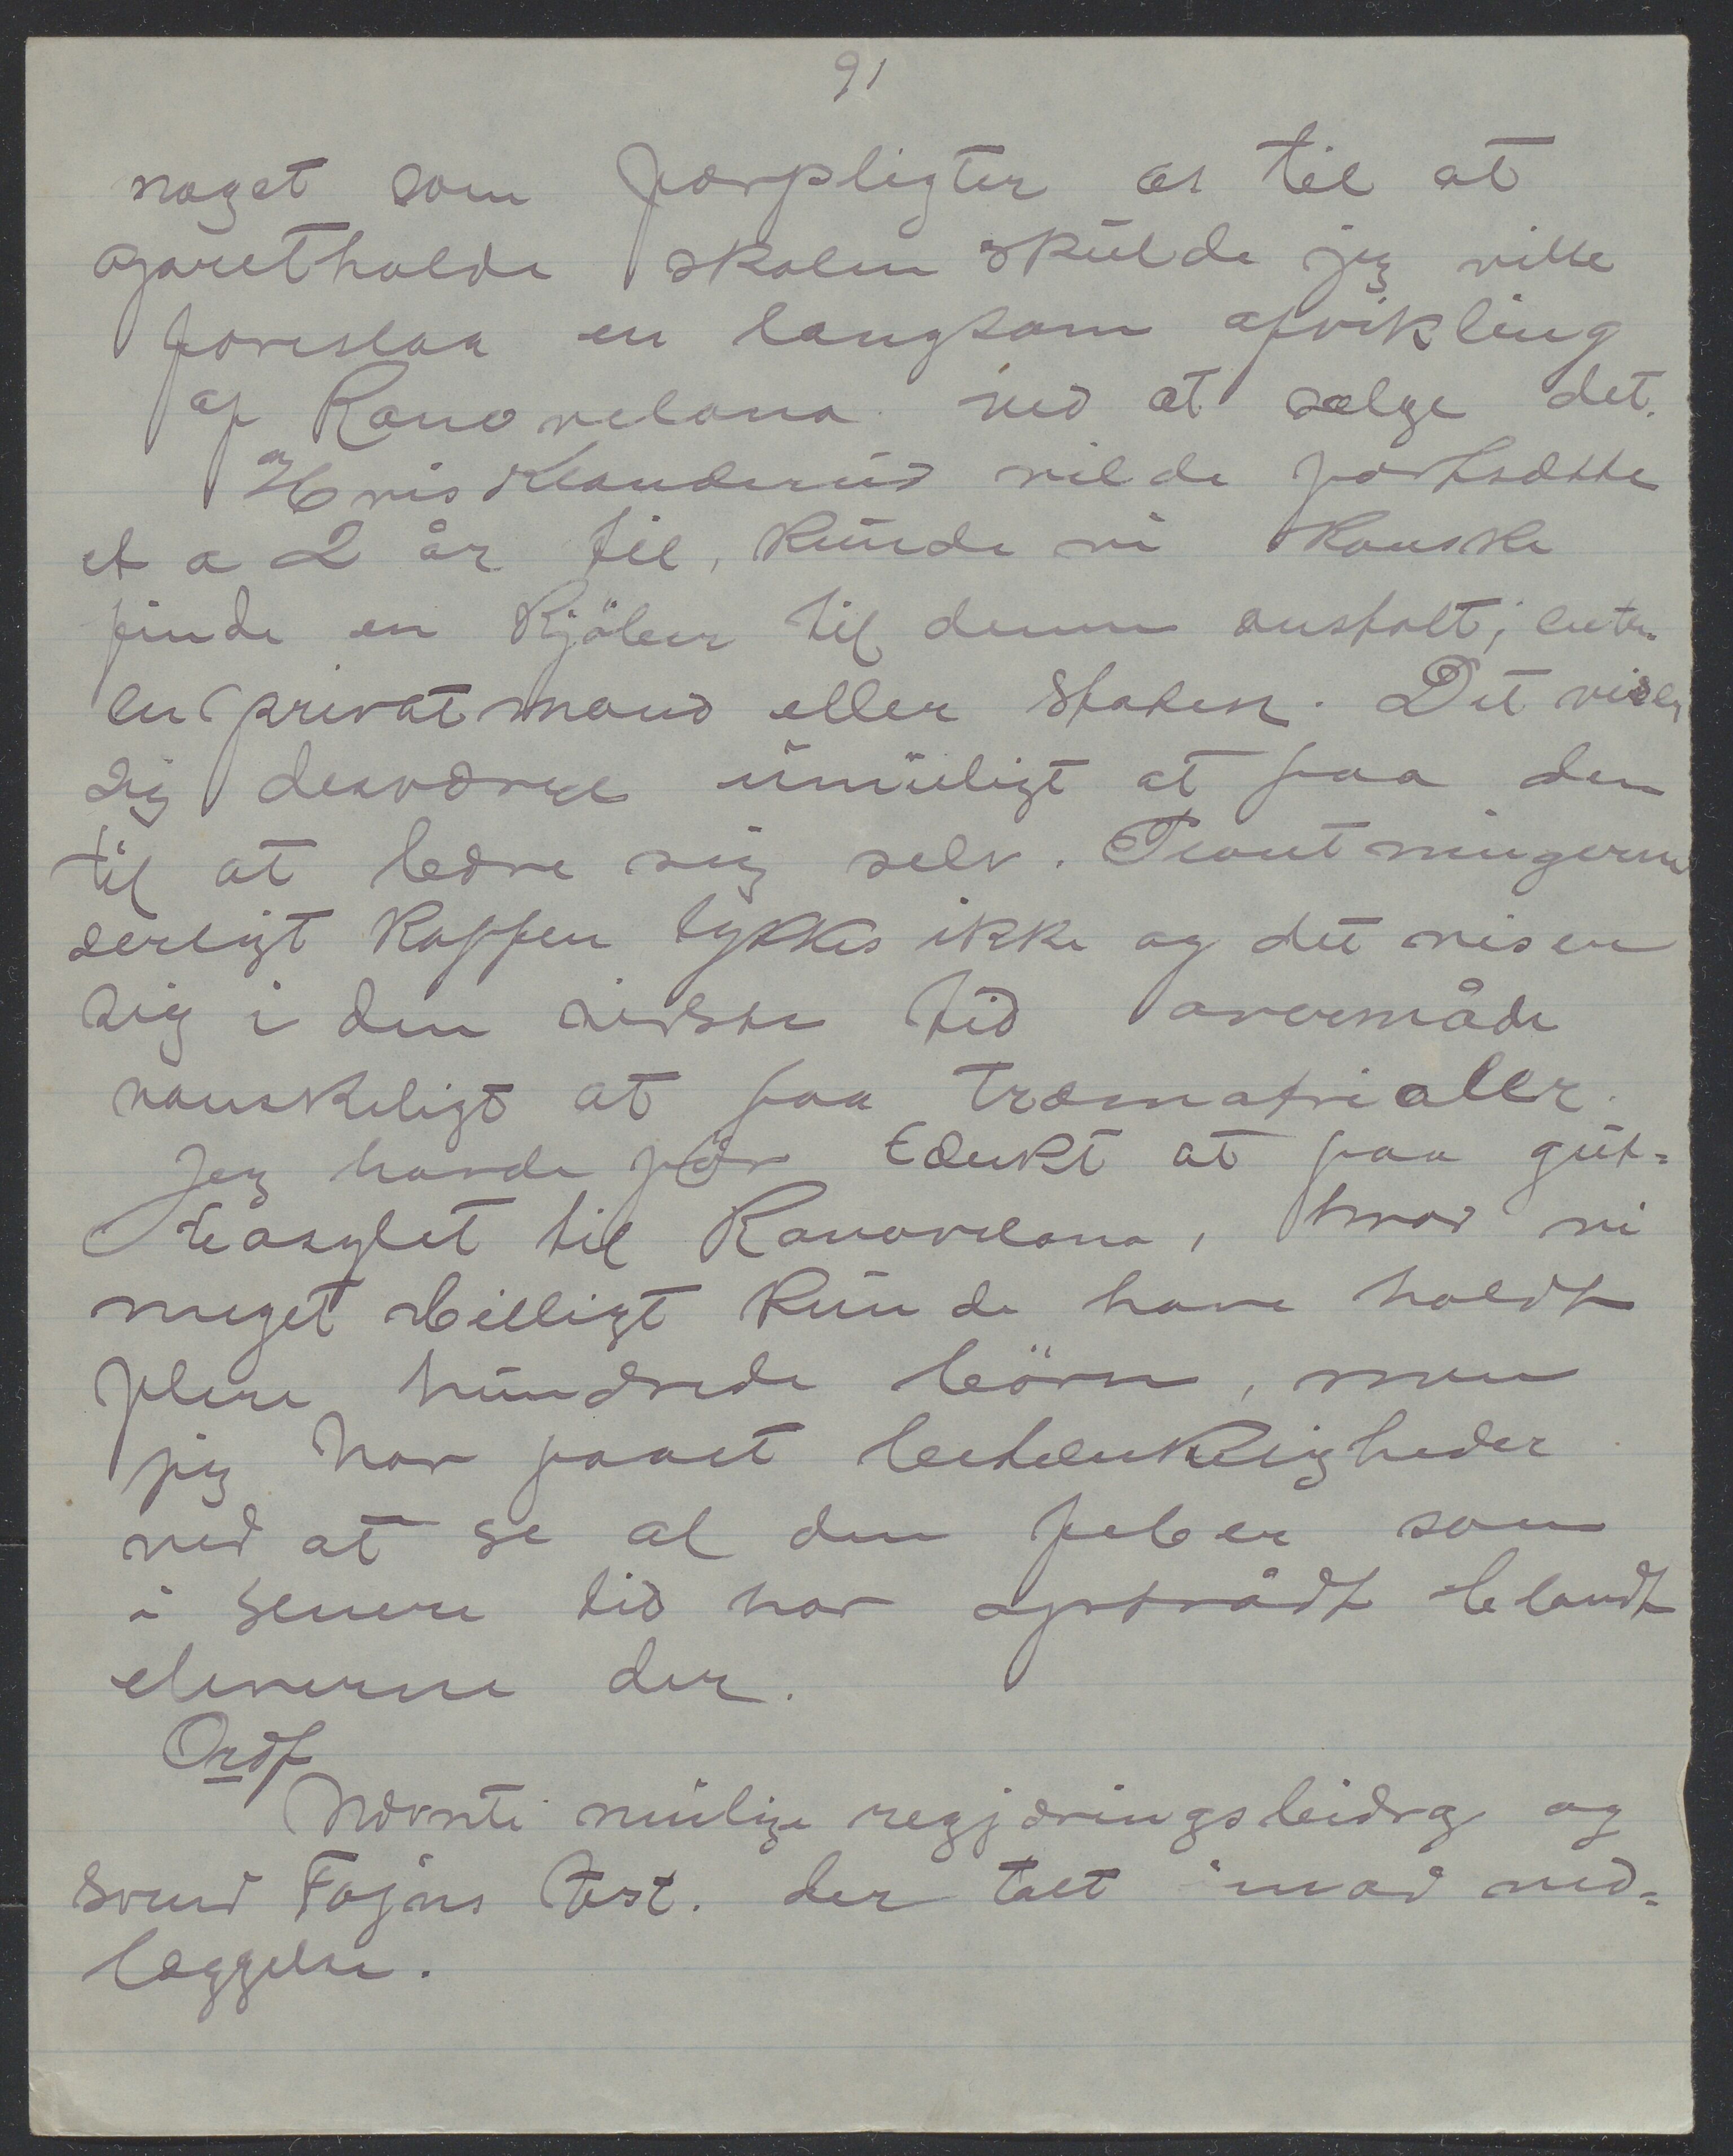 91
noget som forpligter os til at
opretholde skolen skulde jeg ville
foreslaa en langsom afvikling
af Ranovelona ved at sælge det.
Hvis Klanderud vilde fortsætte
et a 2 år til, kunde vi kanske
finde en kjöber til denne anstalt; enten
en privatmand eller staten. Det viser
sig desværre umuligt at faa den
til at bære sig selv. Plantningerne
særligt kaffen lykkes ikke og det viser
sig i den sidste tid overmåde
vanskeligt at faa træmatrialler.
Jeg havde för tænkt at faa gut-
teasylet til Ranovelona, hvor vi
meget billigt kunde have holdt
flere hundrede börn, men
jeg har faaet betænkeligheder
ved at se al den feber som
i senere tid har optrådt blandt
eleverne der.
Ordf
Nævnte mulige regjæringsbidrag og
Svend Fojns test. der talt imod ned-
læggelse.